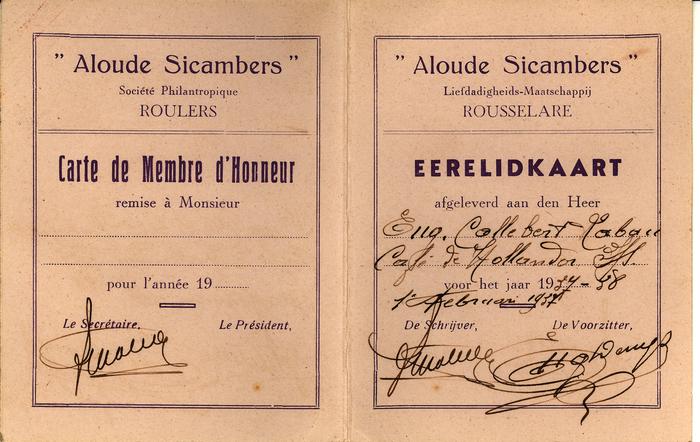 " Aloude Sicambers "
Société Philantropique
ROULERS
Carte de Membre d'Honneur
remise à Monsieur
pour l'année 19
Le Secrétaire,
Le Président,
" Aloude Sicambers "
Liefdadigheids-Maatschappij
ROUSSELARE
EERELIDKAART
afgeleverd aan den Heer
Eug. Callebert
Café de Hollander
voor het jaar 1937-38
1e Februari 1937
De Schrijver,
De Voorzitter,